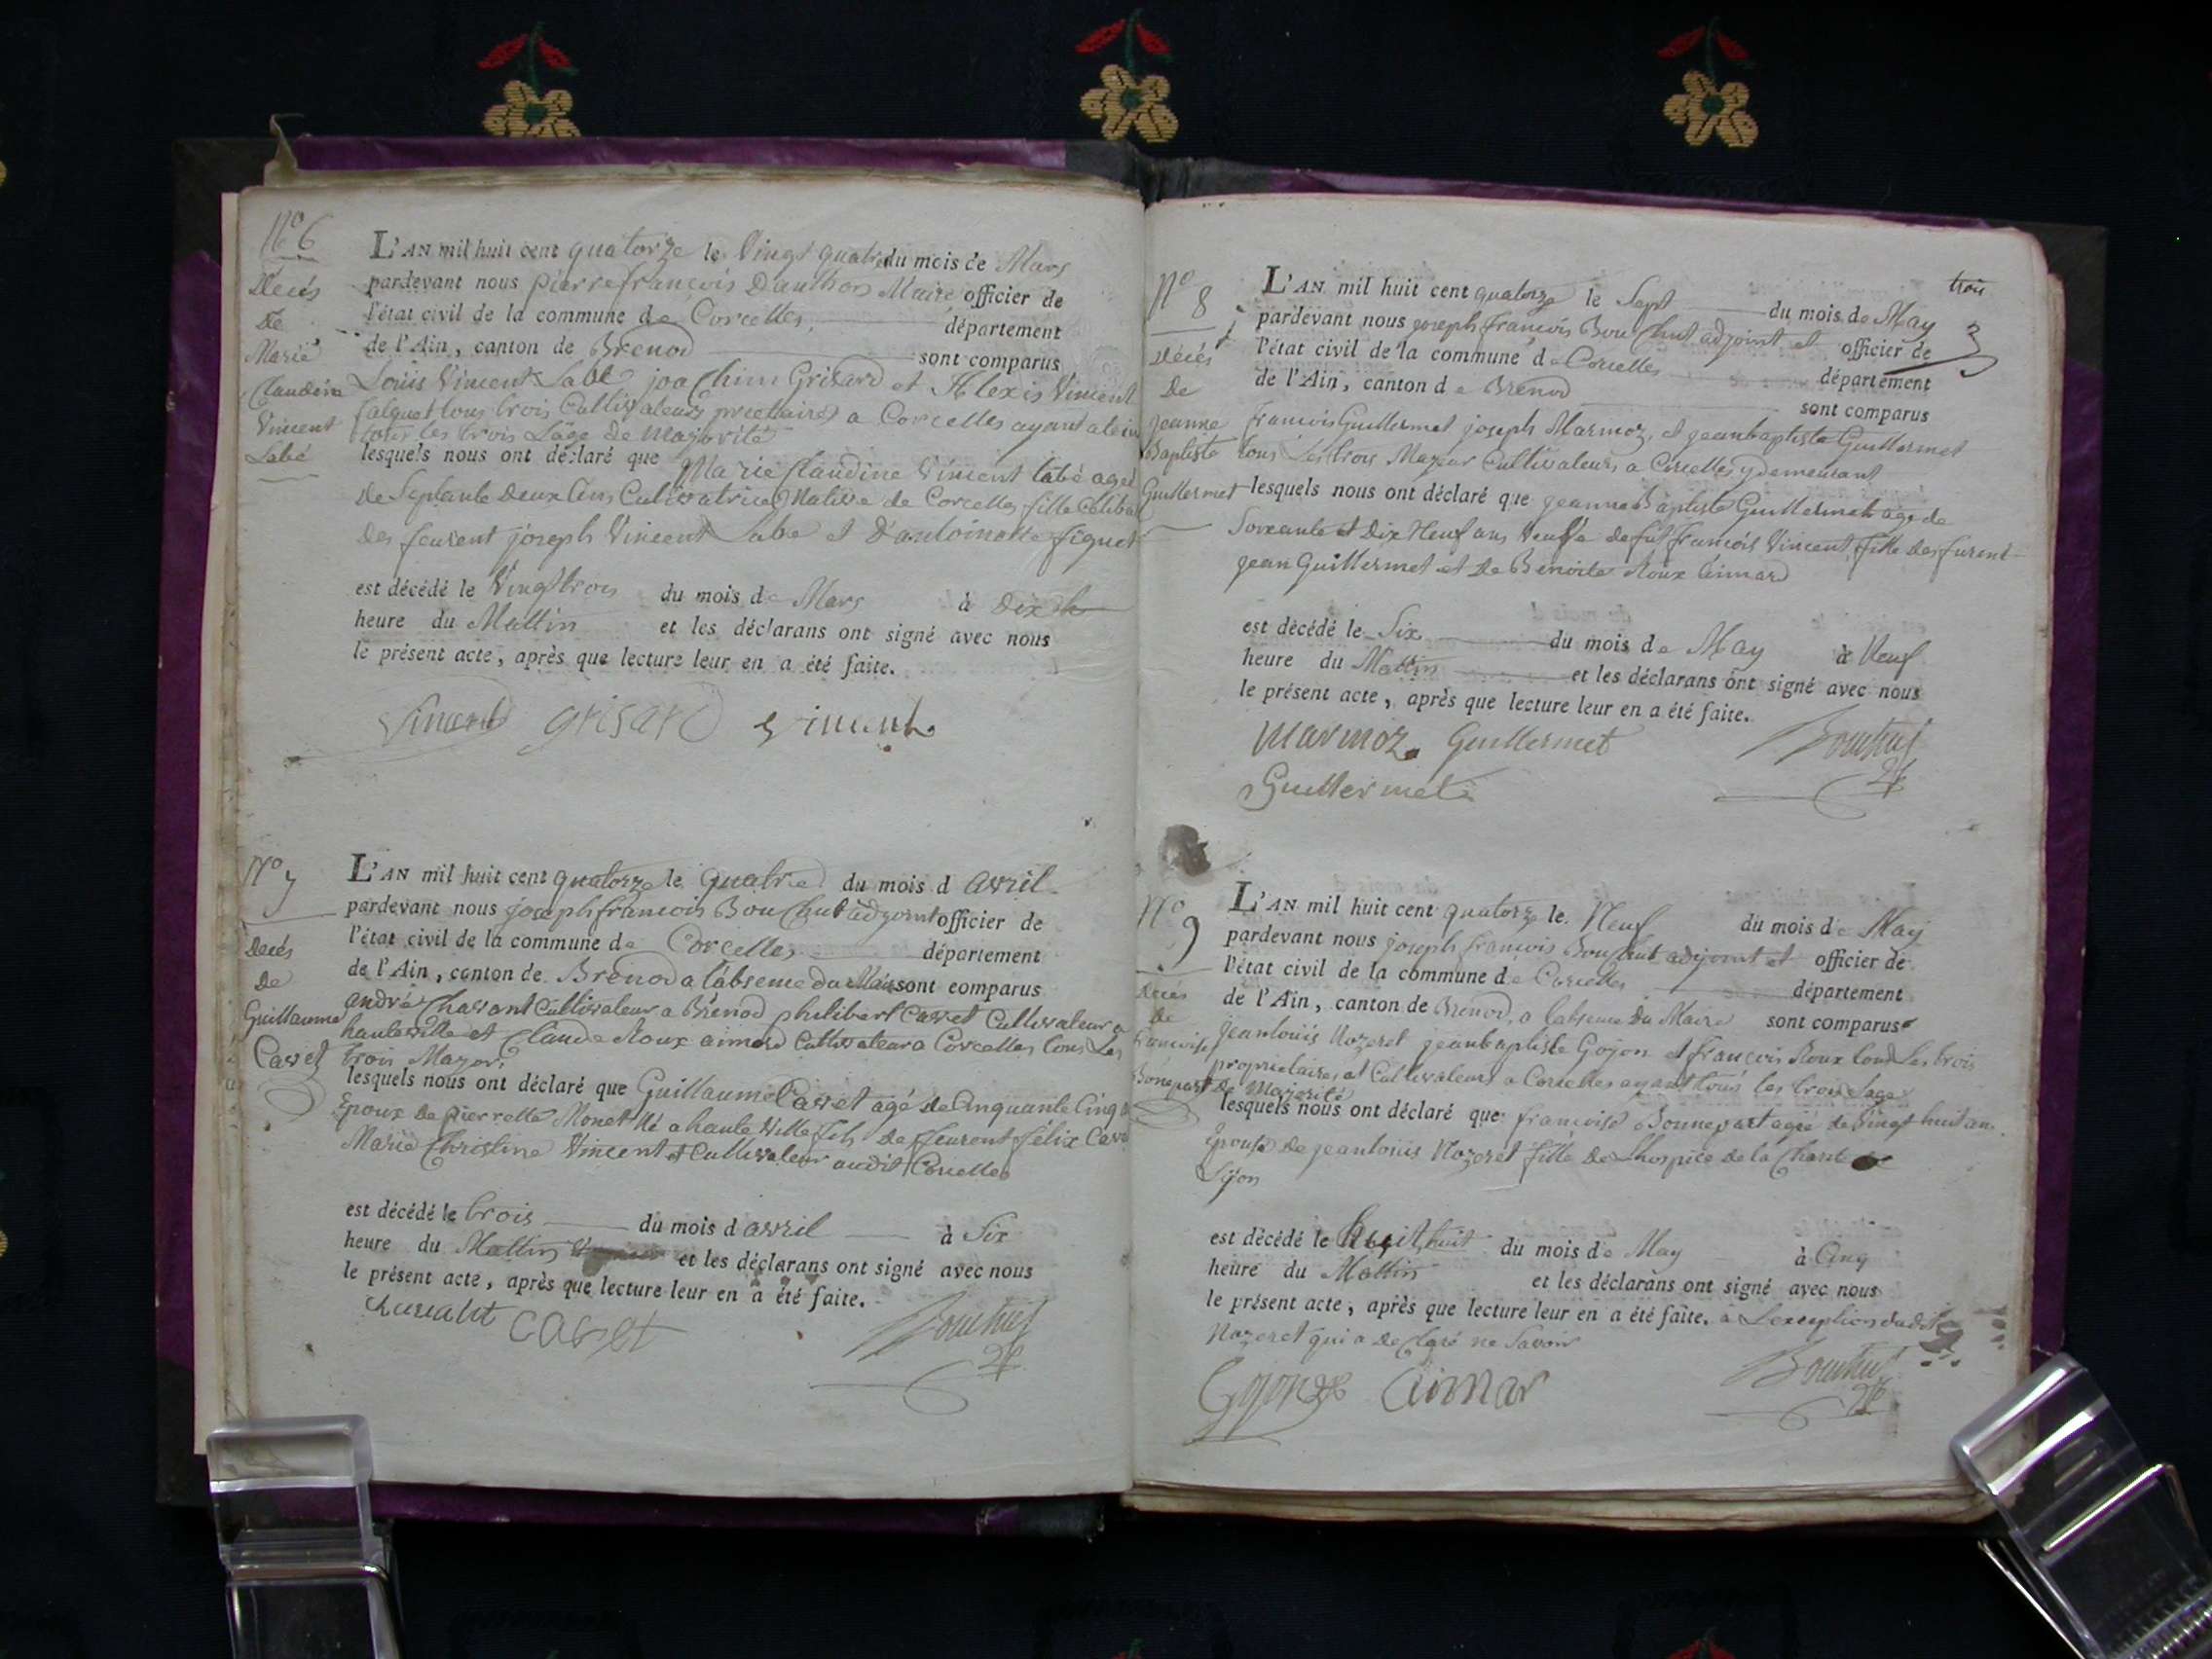 N° 6
Décés
De
Marie
Claudine
Vincent
Labé
L'AN mil huit cent quatorze le Vingt quatre du mois de Mars
pardevant nous pierre françois Dauthon Maire officier de
l'état civil de la commune de Corcelles, département
de l'Ain, canton de Brenod sont comparus
Louis Vincent Labé joachim Grisard et Alexis Vincent
falquet tous trois Cultivateurs a Corcelles ayant
tous les trois L'âge de Majorité
lesquels nous ont déclaré que Marie Claudine Vincent labé agée
de Septante Deux ans Cultivatrice Native de Corcelles fille
des feurent joseph Vincent Labe et D'antoinette
est décédé le Vingt trois du mois de Mars à Dix h
heure du Mattin et les déclarans ont signé avec nous
le présent acte, après que lecture leur en a été faite.
Vincent grisard Vincent
N° 7
Decés
De
Guillaume
Cavet
L'AN mil huit cent quatorze le quatre du mois d avril
pardevant nous joseph francois Bouchut adjoint officier de
l'état civil de la commune de Corcelles département
de l'Ain, canton de Brenod a l'absence du Maire sont comparus
andré Chavant Cultivateur a Brenod philibert Cavet Cultivateur a
hauteville et Claude Roux aimard Cultivateur a Corcelles tous Les
trois Majors
lesquels nous ont déclaré que Guillaume Cavet agé de Cinquante Cinq
Epoux de pierrette Monet Né a hauteville fils de feurent félix
Marie Christine Vincent et Cultivateur audit Corcelles
est décédé le trois du mois d avril à Six
heure du Mattin et les déclarans ont signé avec nous
le présent acte, après que lecture leur en a été faite.
cavet Bouchut
trois
3
N° 8
Décés
De
jeanne
Baptiste
Guillermet
L'AN mil huit cent quatorze le Sept du mois de May
pardevant nous joseph françois Bouchut adjoint et officier de
l'état civil de la commune de Corcelles département
de l'Ain, canton de Brenod sont comparus
francois Guillermet joseph Marmoz, et jeanbaptiste Guillermet
tous Les trois Majeur Cultivateurs a Corcelles y demeurant
lesquels nous ont déclaré que jeanne Baptiste Guillermet age de
Soixante et Dix Neuf ans Veuve de fut françois Vincent, fille des furent
jean Guillermet et de Benoite Roux aimard
est décédé le Six du mois de May à Neuf
heure du Mattin et les déclarans ont signé avec nous
le présent acte, après que lecture leur en a été faite.
Marmoz Guillermet Bouchut
Guillermet
N° 9
Décés
De
francoise
Bonepart
L'AN mil huit cent quatorze le Neuf du mois de May
pardevant nous joseph francois Bouchut adjoint et officier de
l'état civil de la commune de Corcelles département
de l'Ain, canton de Brenod, a l'absence du Maire sont comparus
jeanlouis Nozeret jeanbaptiste Gojon et françois Roux tous Les trois
proprietaires et Cultivateurs a Corcelles ayant tous les trois L'age
De Majorité
lesquels nous ont déclaré que francoise Bonnepart agée de Vingt huit an
Epouse De jeanlouis Nozeret fille de L'hospice de la Charité de
Lijon
est décédé le huit huit du mois de May à Cinq
heure du Mattin et les déclarans ont signé avec nous
le présent acte, après que lecture leur en a été faite. a L'exception dudit
Nozeret qui a declaré ne Savoir
Gojon aimar Bouchut